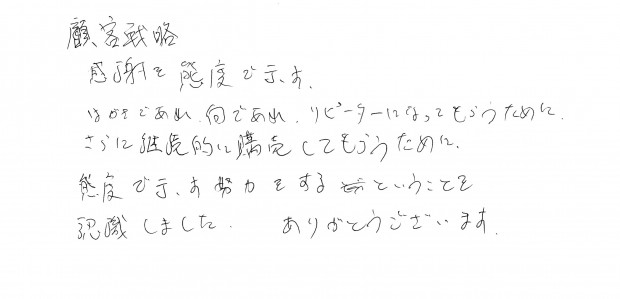 顧客戦略
感謝を態度で示す。
はがきであれ、何であれ、リピーターになってもらうために、
さらに継続的に購売してもらうために、
態度で示す努力をするということを
認識しました。 ありがとうございます。